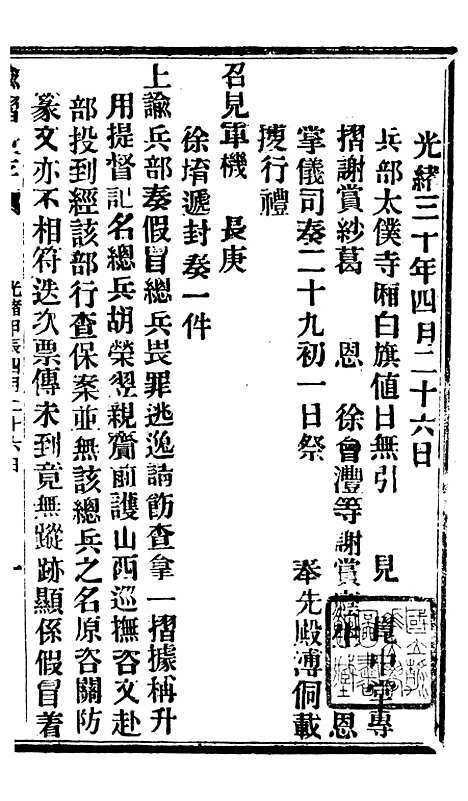 光緒三十年四月二十六日
兵部太僕寺廂白旗值日無引　見　崑中堂專
摺謝賞紗葛　恩　徐會灃等謝賞　恩
掌儀司奏二十九初一日祭　奉先殿溥侗載
㨄行禮
召見軍機　長庚
徐堉遞封奏一件
上諭兵部奏假冒總兵畏罪逃逸請飭查拿一摺據稱升
用提督記名總兵胡榮翌親齎前護山西巡撫咨文赴
部投到經該部行查保案並無該總兵之名原咨關防
篆文亦不相符迭次票傳未到竟無蹤跡顯係假冒着
光緒甲辰四月二十六日　一